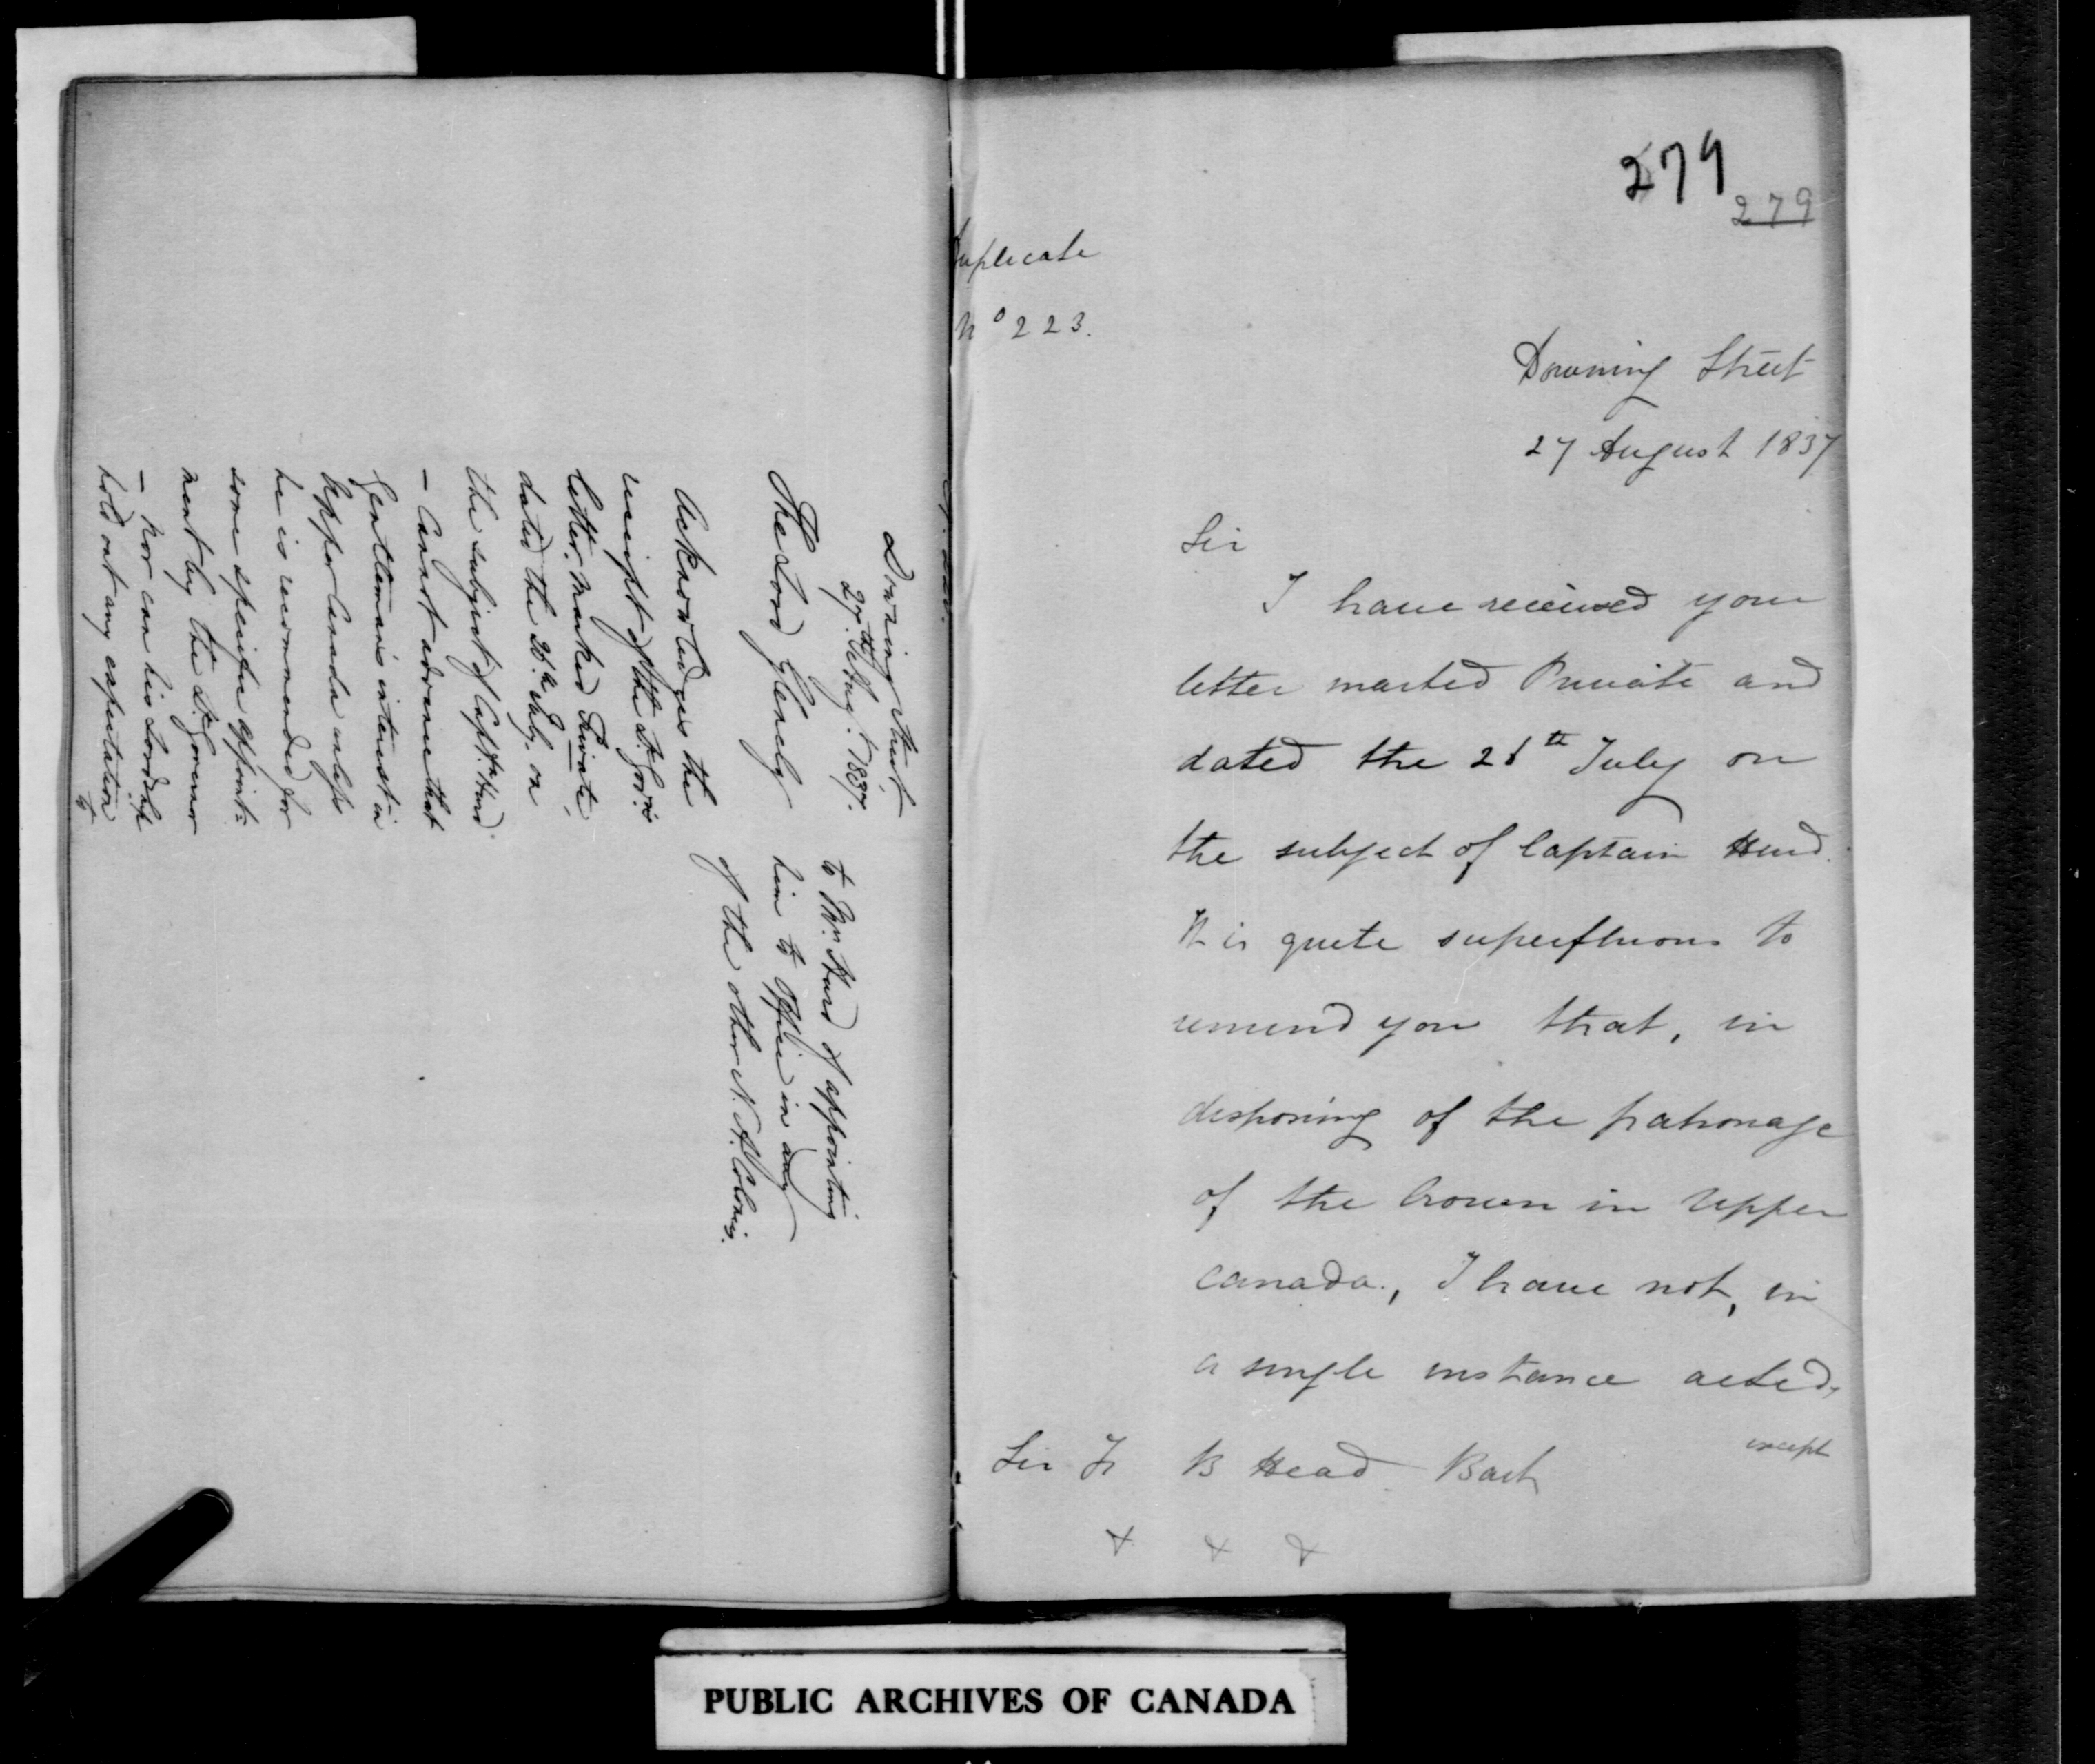 Downing Street
27th Augt. 1837.
The Lord Glenelg
Acknowledges the
receipt of the Lt. Govr's
letter, marked Private,
dated the 26th July, on
the subject of Captn. Hurd.
- Cannot advance that
Gentleman's interest in
Upper Canada unless
he is recommended for
some specific appoint=
ment by the Lt. Governor
- Nor can his Lordship
hold out any expectation
to
to Mr. Hurd of appointing
him to office in any
of the other N. A. Colonies.
279
279
Duplicate
No 223.
Downing Street
27 August 1837
Sir
I have received your
letter marked Private and
dated the 26th July on
the subject of Captain Hurd.
It is quite superfluous to
remind you that, in
disposing of the patronage
of the Crown in Upper
Canada, I have not, in
a single instance acted,
except
Sir F B Head Bart
+ + +
PUBLIC ARCHIVES OF CANADA